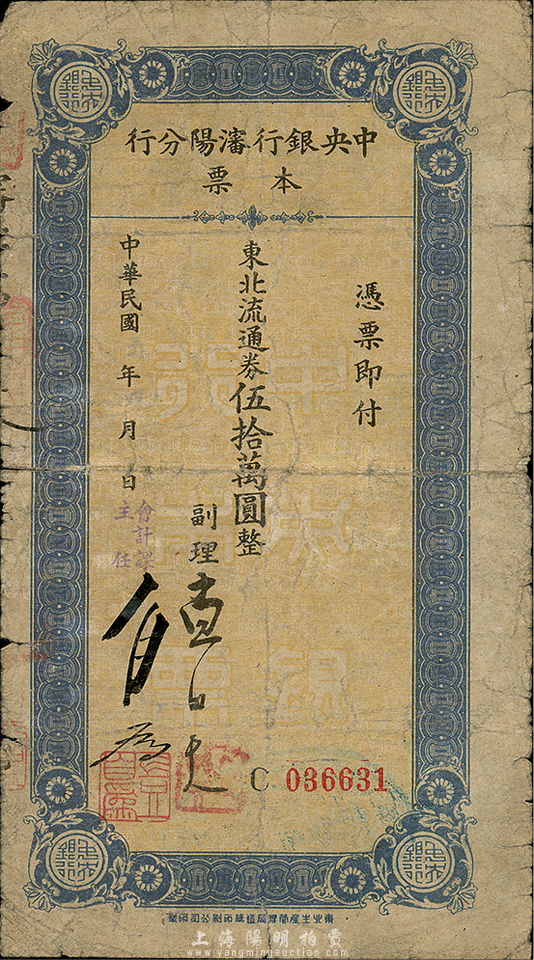 中央銀行瀋陽分行
本票
憑票即付
東北流通券伍拾萬圓整
中華民國 年 月 日
副理
會計課
主任
C 036631
上海陽明拍賣
www.yangmingauction.com